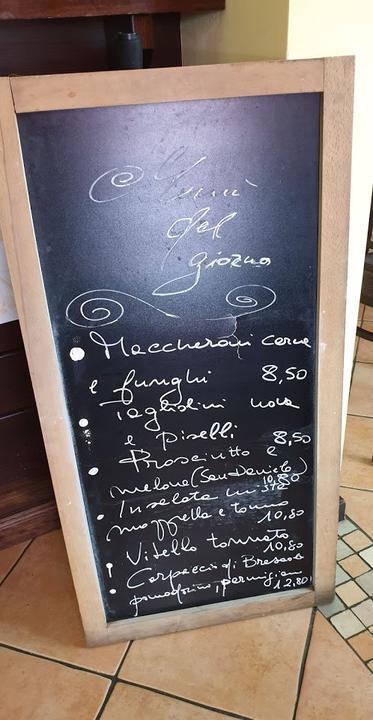 Menù
del
giorno
Maccheroni carne
e funghi 8,50
Taglidini
e piselli 8,50
Prosciutto e
melone (San Daniele)
10,80
Insalata
mozzella e tonno
10,80
Vitello tonnato
10,80
Carpaccio di Bresaola
pomodorino, parmigiano
12,80